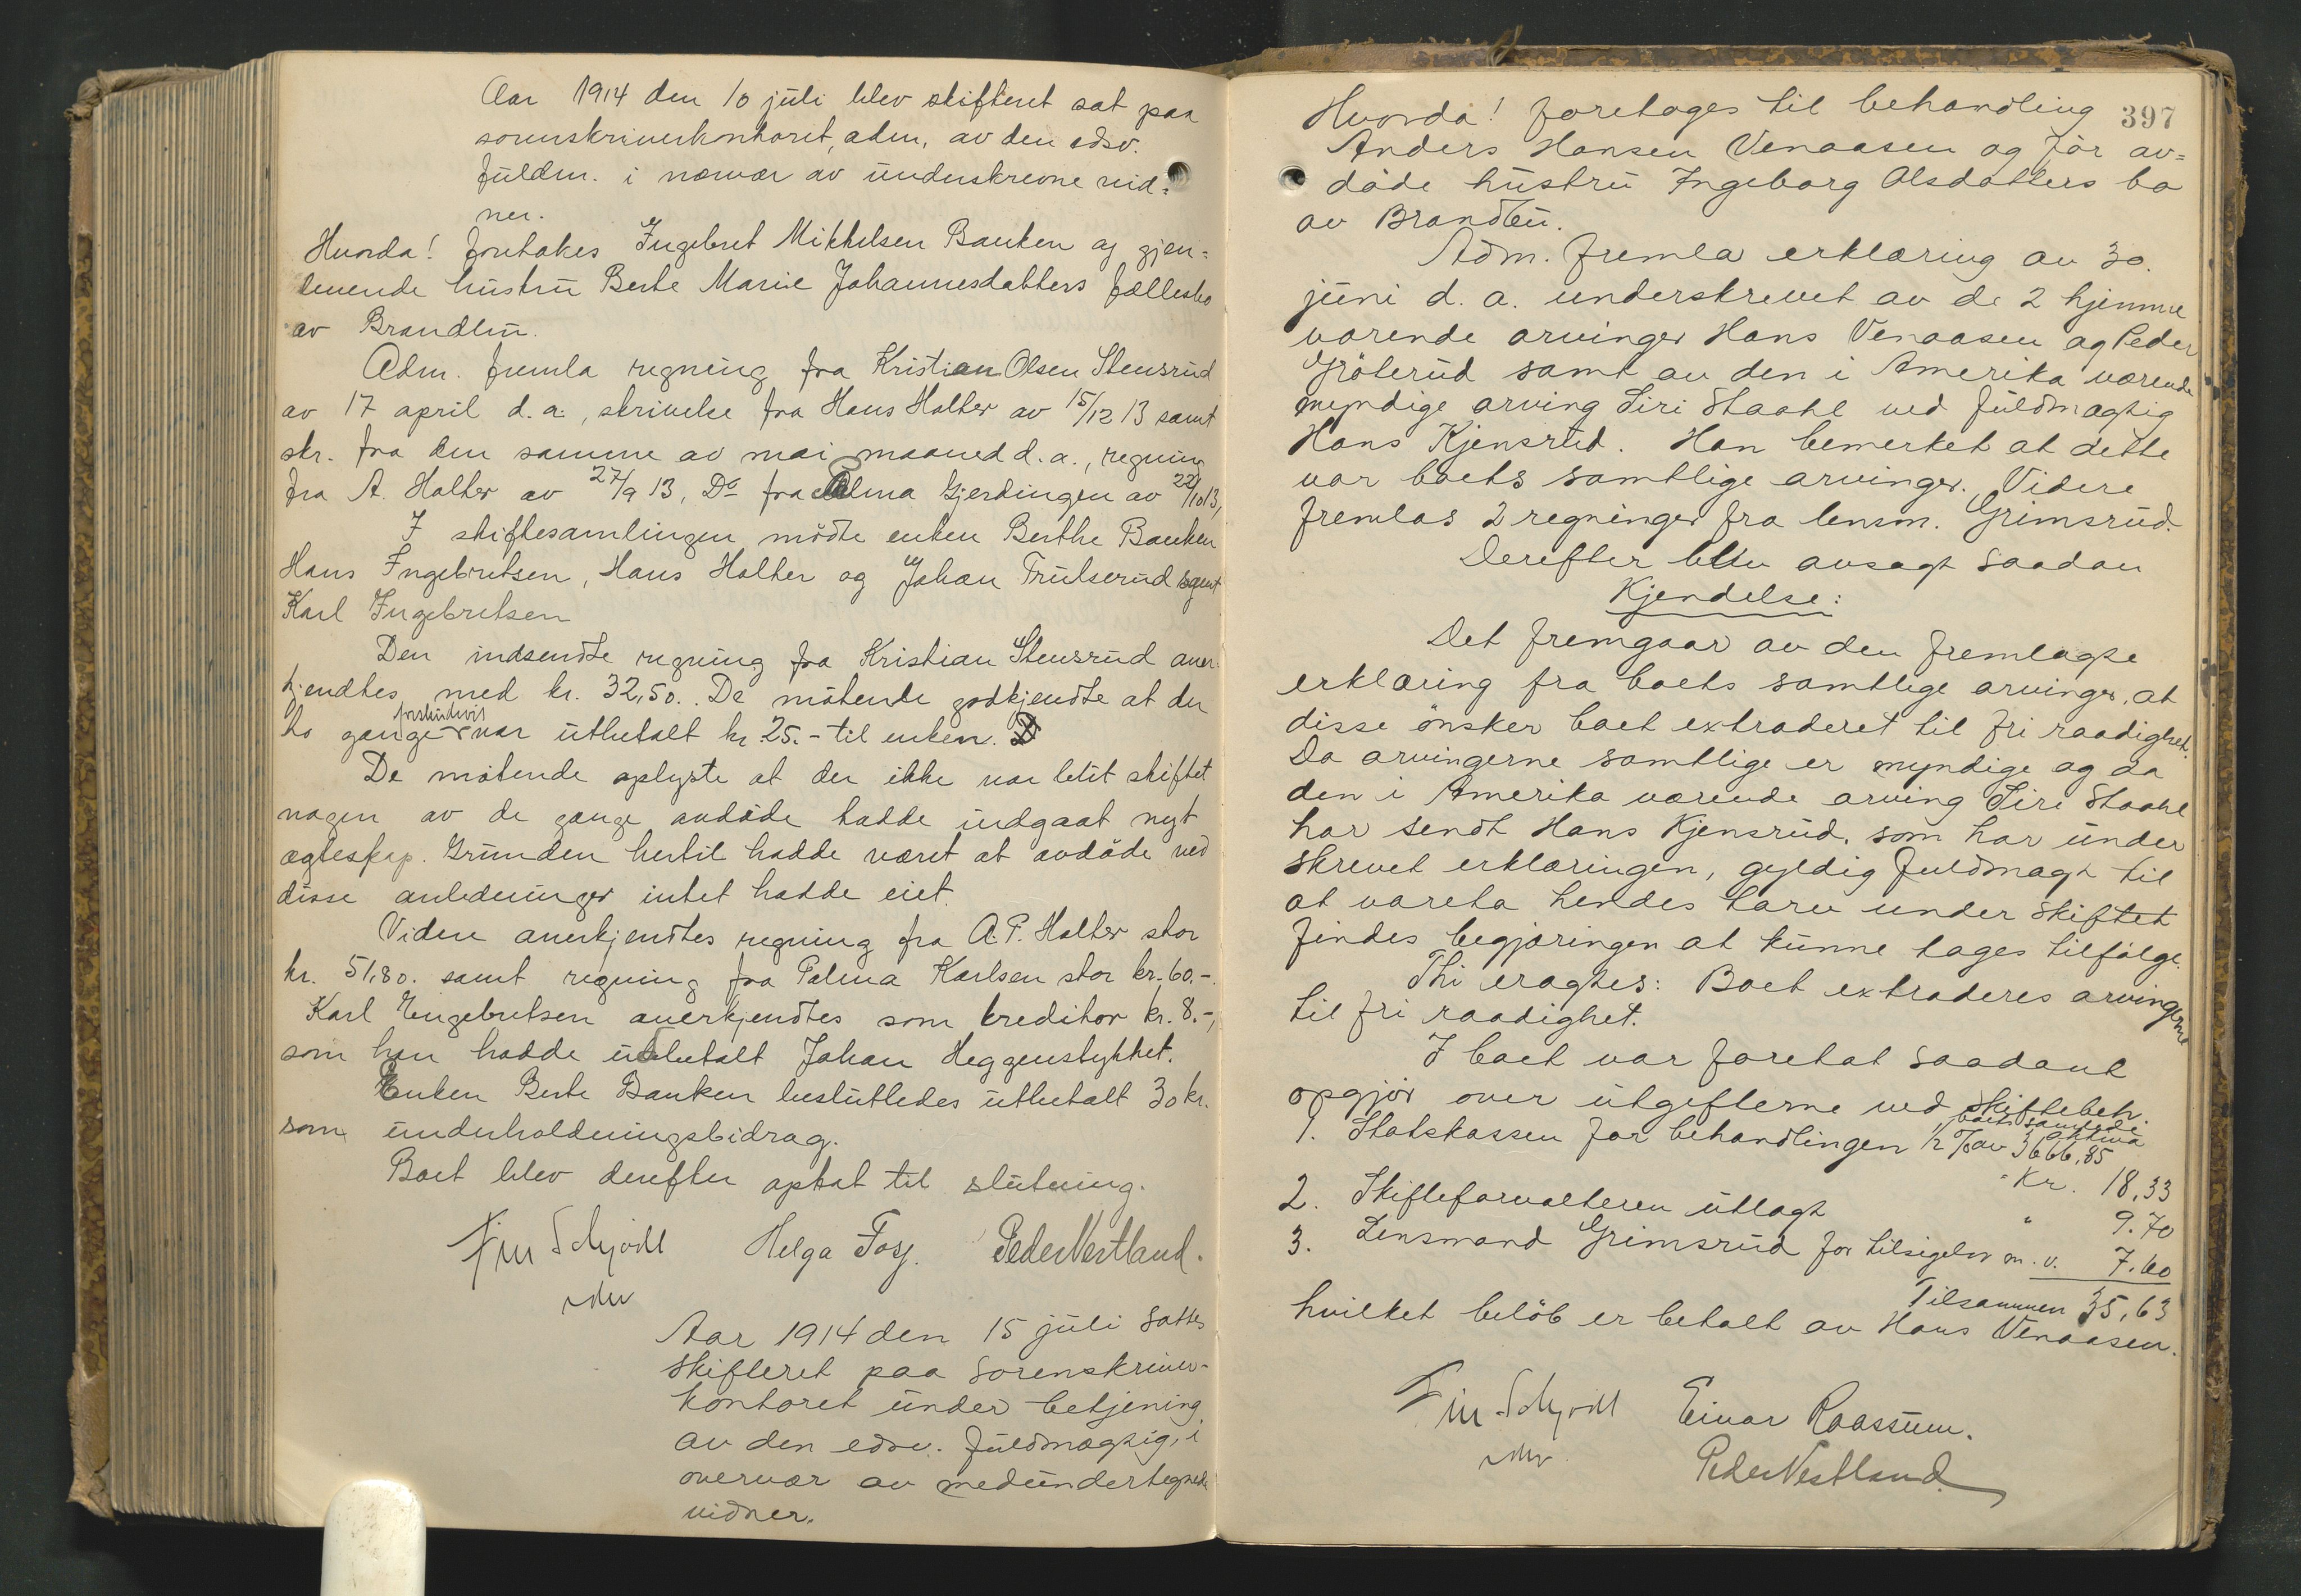 Aar 1914 den 10 juli blev skifteret sat paa
sorenskriverkontoret, adm. av den edsv.
fuldm. i nærvær av underskrevne vid-
ner.
Hvorda! foretokes Ingebret Mikkelsen Bauken og gjen-
levende hustru Berte Marie Johannesdatters fællesbo
av Brandbu.
Adm. fremla regning fra Kristian Olsen Stensrud
av 17 april d.a., skrivelse fra Hans Halter av 15/12 13 samt
skr. fra den samme av mai maaned d.a., regning
fra A. Halter av 27/9 13, Do fra Palma Gjerdingen av 22/10 13,
I skiftesamlingen mødte enken Berthe Bauken
Hans Ingebretsen, Hans Halter og Johan Trulserud samt
Karl Ingebretsen
Den indsendte regning fra Kristian Stensrud aner-
kjendtes med kr. 32,50. De møtende godkjendte at der
to gange forskudvis var utbetalt kr. 25.- til enken.
De møtende oplyste at der ikke var blit skiftet
nogen av de gange avdøde hadde indgaat nyt
egteskap. Grunden hertil hadde været at avdøde ved
disse anledninger intet hadde eiet.
Videre anerkjendtes regning fra A.P. Halter stor
kr. 51,80. samt regning fra Palma Karlsen stor kr. 60.-.
Karl Engebretsen anerkjendtes som kreditor kr. 8.-,
som han hadde utbetalt Johan Heggenstykket.
Enken Berte Bauken beslutledes utbetalt 30 kr.
som underholdningsbidrag.
Boet blev derefter optat til slutning.
Fin Schjødt Helga Fosz. Peder Vestland.
Aar 1914 den 15 juli sattes
skifteret paa sorenskriver-
kontoret under betjening
av den edsv. fuldmægtig, i
overvær av medundertegnede
vidner.
397
Hvorda! foretages til behandling
Anders Hansen Venaasen og før av-
døde hustru Ingeborg Olsdatters bo
av Brandbu.
Adm. fremla erklæring av 30.
juni d.a. underskrevet av de 2 hjemme
værende arvinger Hans Venaasen og Peder
Grøterud samt av den i Amerika værende
myndige arving Siri Staahl ved fuldmægtig
Hans Kjensrud. Han bemerket at dette
var boets samtlige arvinger. Videre
fremlas 2 regninger fra lensm. Grimsrud.
Derefter blev avsagt saadan
Kjendelse:
Det fremgaar av den fremlagte
erklæring fra boets samtlige arvinger, at
disse ønsker boet extraderet til fri raadighet.
Da arvingerne samtlige er myndige og da
den i Amerika værende arving Siri Staahl
har sendt Hans Kjensrud, som har under
skrevet erklæringen, gyldig fuldmagt til
at vareta hendes tarv under skiftet
findes begjæringen at kunne tages tilfølge.
Thi eragtes: Boet extraderes arvingerne
til fri raadighet.
I boet var foretat saadant
opgjør over utgifterne ved skiftebeh.
1. Statskassen for behandlingen 1/2 % av boets samtlede aktiva 3666,85
Kr. 18,33
2. Skifteforvalteren utlagt " 9.70
3. Lensmand Grimsrud for tilsigelser m.v. 7.60
Tilsammen 35,63
hvilket beløb er betalt av Hans Venaasen.
Fin Schjødt Einar Raassum.
Peder Vestland